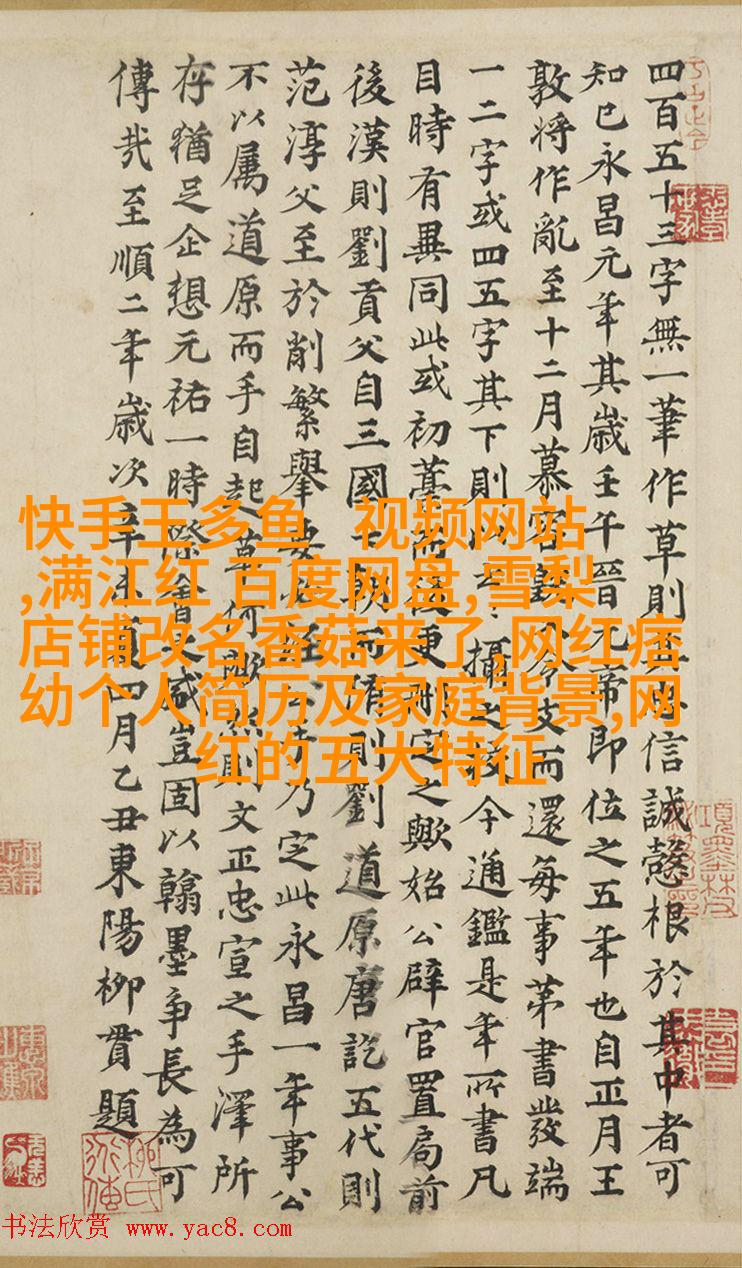 四百五十三字無一筆作草則信誠慤根於其中者可
知已永昌元年其歲壬午晉元帝即位之五年也自正月王
敦將作亂至十二月慕容令支而還每事第書發端
一二字或四五字其下則以攝之校今通鑑是年所書凡
目時有異同此或初藁而後更刪定之歟始公辟官置局前
後漢則劉貢父自三國七朝而隋則劉道原唐訖五代則
范淳父至於削繁舉要必經公手乃定此永昌一年事公
不以屬道原而手自起草何歟然則文正忠宣之手澤所
存猶足企想元祐一時際會之盛豈固以翰墨爭長為可
傳哉至順二年歲次辛未夏四月乙丑東陽柳貫題
快手王多鱼 视频网站
,满江红 百度网盘,雪梨
店铺改名香菇来了,网红痞
幼个人简历及家庭背景,网
红的五大特征
书法欣赏 www.yac8.com